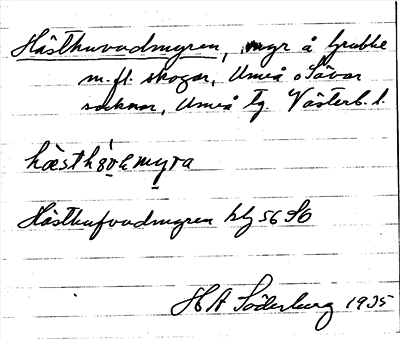 Hästhuvudmyren, myr å Grubbe
m.fl. skogar, Umeå o Sävar
socknar, Umeå tg. Västerb. l.
Hästhufvudmyren blz 56 SO
H A Söderberg 1935